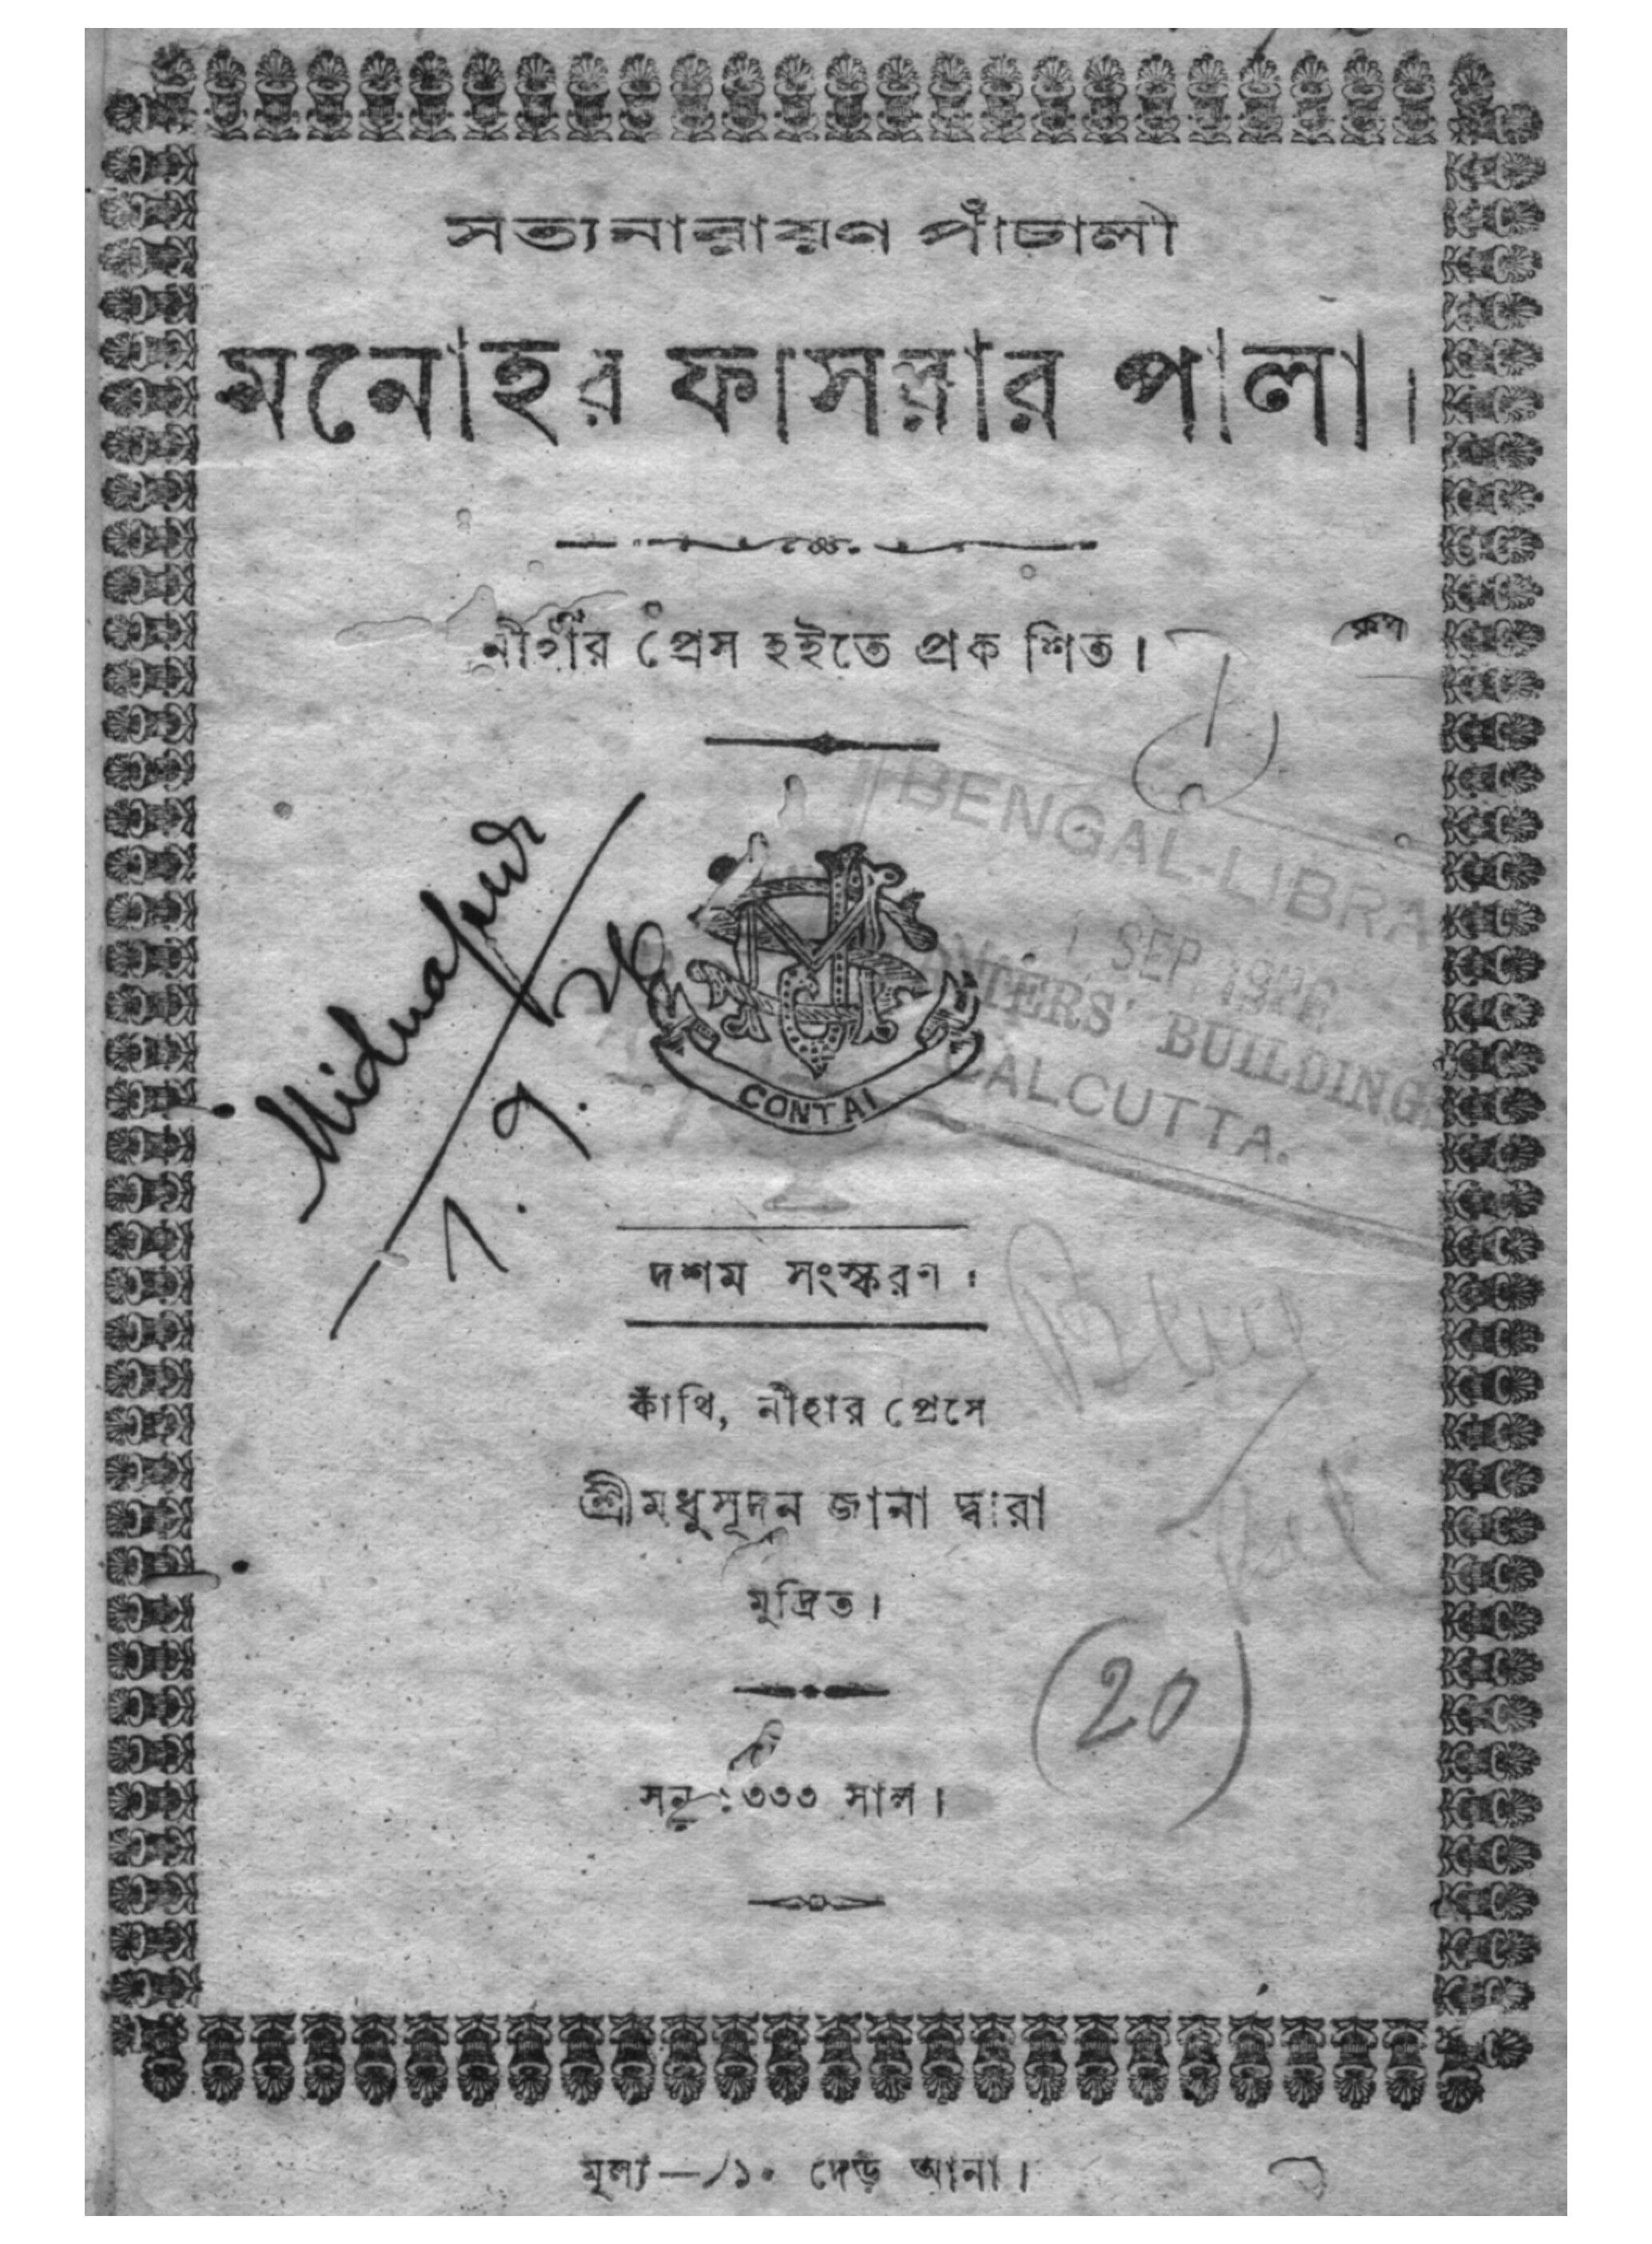 সত্যনারায়ণ পাঁচালী
মনোহর ফাসরার পালা।
নীহার প্রেস হইতে প্রকাশিত।
BENGAL-LIBRA
1 SEP 192
BUILDING
CALCUTTA.
Midnapur
7. 9. 26
CONTAI
দশম সংস্করণ।
কাঁথি, নীহার প্রেসে
শ্রীমধুসূদন জানা দ্বারা
মুদ্রিত।
(20)
সন ১৩৩৩ সাল।
মূল্য—৴১০ দেড় আনা।